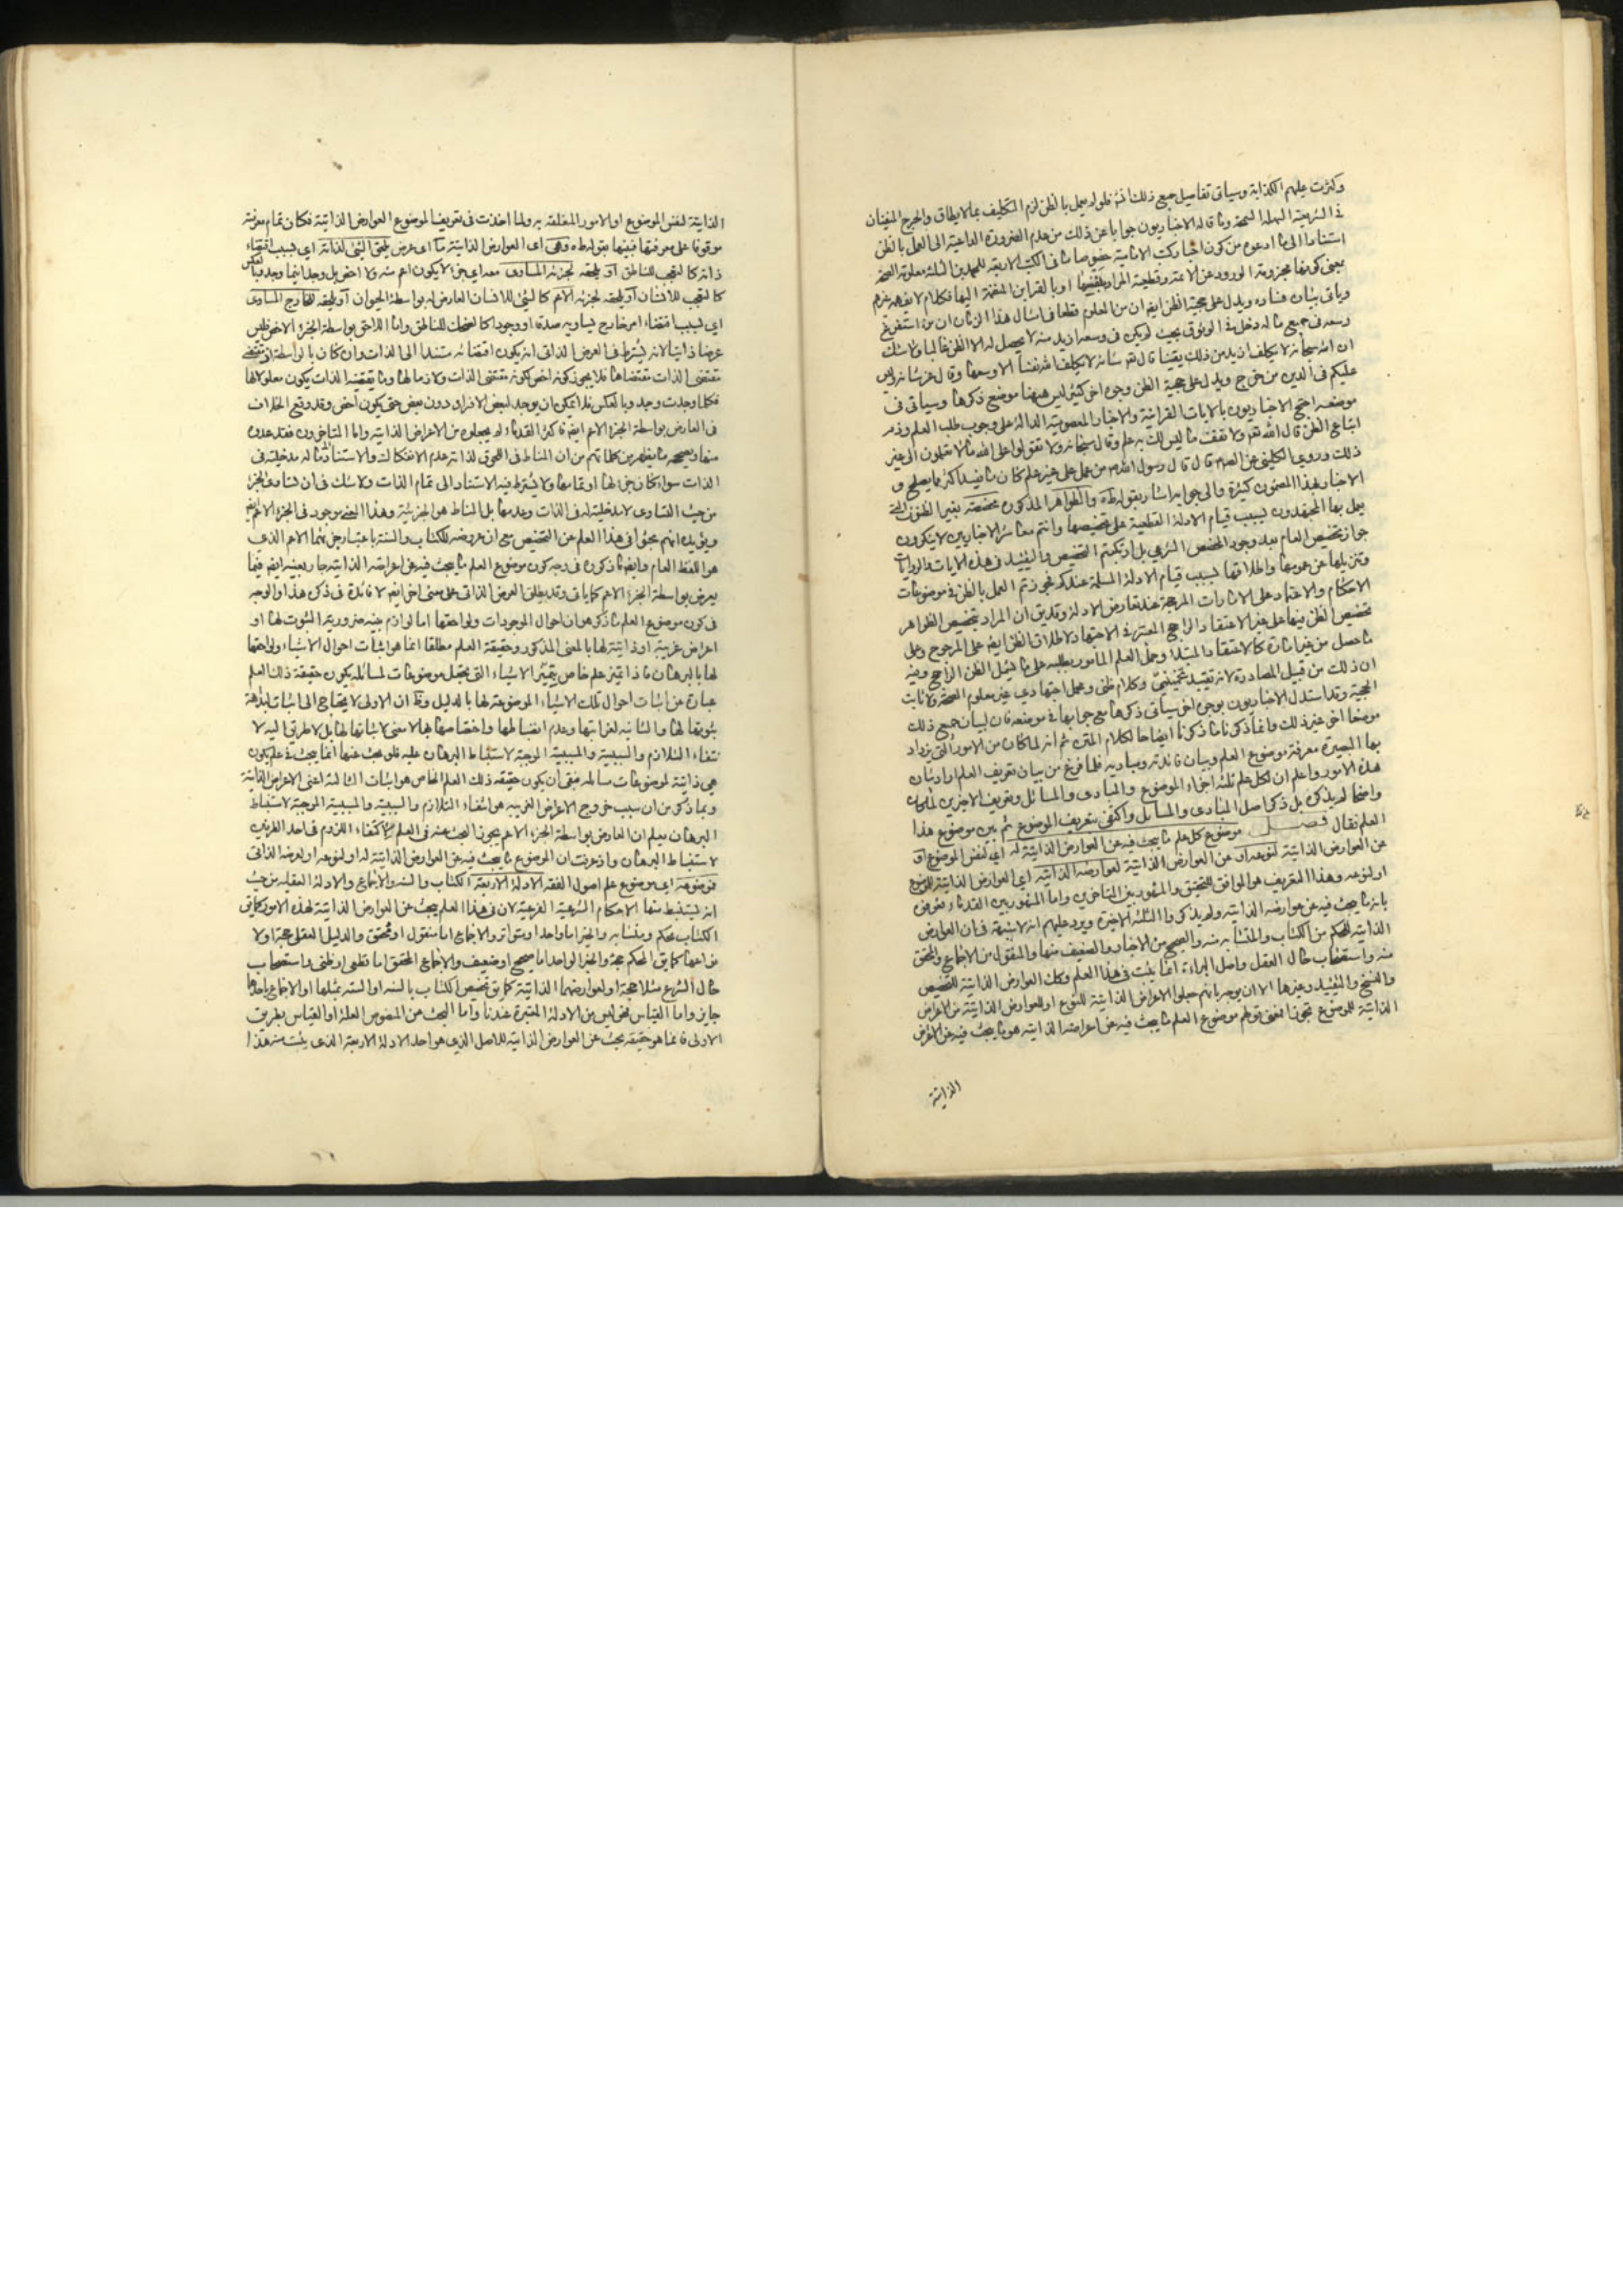 وكثرت عليهم الكذابة وسياتى تفاصيل جميع ذلك انش فلو لم يعمل بالظن لزم التكليف بما لا يطاق والحرج المنفيان
فى الشريعة السهلة السمحة وما قاله الاخباريون جوابا عن ذلك من عدم الضرورة الداعية الى العمل بالظن
استنادا الى ما ادعوه من كون اخبار كتب الامامية خصوصا ما فى الكتب الاربعة للمحمدين الثلثة معلومة الصحة
بمعنى كونها مجزومة الورود عن الائمة وقطعية المراد بنفسها او بالقراين المنضمة اليها فكلام لا
وياتى بيان فساده ويدل على حجية الظن ايضا ان من المعلوم قطعا فى امثال هذا الزمان ان من استفرغ
وسعه فى جميع ما له دخل فى الوثوق بحيث لم يكن فى وسعه ازيد منه لا يحصل له الا الظن غالبا ولا شك
ان الله سبحانه لا يكلف ازيد من ذلك يقينا قال تعر شانه لا يكلف الله نفسا الا وسعها وقال عز شانه وليس
عليكم فى الدين من حرج ويدل على حجية الظن وجوه اخر كثيرة ليس ههنا موضع ذكرها وسياتى فى
موضعه احتج الاخباريون بالايات القرانية والاخبار المعصومية الدالة على وجوب طلب العلم وذم
اتباع الظن قال الله تعر ولا تقف ما ليس لك به علم وقال سبحانه ولا تقولوا على الله ما لا تعلمون الى غير
ذلك وروى الكلينى عن الصم قال قال رسول الله من عمل على غير علم كان ما يفسد اكثر مما يصلح و
الاخبار بهذا المضمون كثيرة والى جوابه اشار بقوله طه والظواهر المذكورة مخصصة بغير الظنون التى
يعمل بها المجتهدون لسبب قيام الادلة القطعية على تخصيصها وانتم معاشر الاخباريين لا تنكرون
جواز تخصيص العام بعد وجود المخصص الشرعى بل ارتكبتم التخصيص والتقييد فى هذه الايات والروايات
وتنزيلها عن عمومها واطلاقها لسبب قيام الادلة المسلمة عندكم فجوزتم العمل بالظن فى موضوعات
الاحكام والاعتماد على الامارات المرجحة عند تعارض الادلة وقد يق ان المراد بتخصيص الظواهر
تخصيص الظن فيها على غير الاعتقاد الراجح المعتبر فى الاجتهاد لاطلاق الظن ايضا على المرجوح وعلى
ما حصل من غير امارة كالاعتقاد المبتدا وحمل العلم المامور بطلبه على ما يشمل الظن الراجح وفيه
ان ذلك من قبيل المصادرة لانه تقييد تخمينى وكلام ظنى وعمل اجتهادى غير معلوم الصحة ولا ثابت
الحجية وقد استدل الاخباريون بوجوه اخر سياتى ذكرها مع جوابها فى موضعه فان لبيان جميع ذلك
موضعا اخر غير ذلك وانما ذكرنا ما ذكرنا ايضاحا لكلام المتن ثم انه لما كان من الامور التى يزداد
بها البصيرة معرفة موضوع العلم وبيان فائدته ومباديه فلما فرغ من بيان تعريف العلم اراد بيان
هذه الامور واعلم ان لكل علم ثلثة اجزاء الموضوع والمبادى والمسائل وتعريف الاخيرين لما كان
واضحا لم يذكره بل ذكر اصل المبادى والمسائل واكتفى بتعريف الموضوع ثم بين موضوع هذا
العلم فقال فصل موضوع كل علم ما يبحث فيه عن العوارض الذاتية له اى لنفس الموضوع او
عن العوارض الذاتية لنوعه او عن العوارض الذاتية لعوارضه الذاتية اى العوارض الذاتية للموضوع
او لنوعه وهذا التعريف هو الموافق للتحقيق والمشهور بين المتاخرين واما المشهور بين القدماء فعرفوه
بانه ما يبحث فيه عن عوارضه الذاتية ولم يذكروا الثلثة الاخيرة ويرد عليهم انه لا شبهة فى ان العوارض
الذاتية للمحكم من الكتاب والمتشابه منه والصحيح من الاخبار والضعيف منها والمنقول من الاجماع والمحقق
منه واستصحاب حال العقل واصل البراءة انما يبحث فى هذا العلم وكذلك العوارض الذاتية للتخصيص
والنسخ والتقييد وغيرها الا ان يوجه بانهم جعلوا الاعراض الذاتية للنوع او للعوارض الذاتية من الاعراض
الذاتية للموضوع تجوزا فمعنى قولهم موضوع العلم ما يبحث فيه عن اعراضه الذاتية هو ما يبحث فيه عن الاعراض
الذاتية
الذاتية لنفس الموضوع او الامور المتعلقة به ولما اخذت فى تعريف الموضوع العوارض الذاتية فكان تمام معرفته
موقوفا على معرفتها فبينها بقوله طه وهى اى العوارض الذاتية ما اى عرض يلحق الشئ لذاته اى لسبب اقتضاء
ذاته كالتعجب للناطق او يلحقه لجزئه المساوى معه اى جزء لا يكون اعم منه ولا اخص بل وجد اينما وجد وبالعكس
كالتعجب للانسان او يلحقه لجزئه الاعم كالمشى للانسان العارض له بواسطة الحيوان او يلحقه للخارج المساوى
اى لسبب اقتضاء امر خارج يساويه صدقا او وجودا كالضحك للناطق واما اللاحق بواسطة الجزء الاخص فليس
عرضا ذاتيا لانه يشترط فى العرض الذاتى انه يكون اقتضائه مستندا الى الذات وان كان بالواسطة اى
مقتضى الذات مقتضاها فلا يجوز كونه اخص لكونه مقتضى الذات ولازما لها وما يقتضيه الذات يكون معلولا لها
فكلما وجدت وجد وبالعكس فلا يمكن ان يوجد لبعض الافراد دون بعض حتى يكون اخص وقد وقع الخلاف
فى العارض بواسطة الجزء الاعم ايضا فاكثر القدماء لم يجعلوه من الاعراض الذاتية واما المتاخرون فقد عدوه
منها وصحته ما يظهر من كلماتهم من ان المناط فى اللحوق لذاته عدم الانفكاك والاستناد مما له مدخلية فى
الذات سواء كان جزء لها او تمامها ولا يشترط فيه الاستناد الى تمام الذات ولا شك فى ان تساوى الجزء
من حيث التساوى لا مدخلية له فى الذات وعدمها بل المناط هو الجزئية وهذا المعنى موجود فى الجزء الاعم ايضا
ويؤيده انهم بحثوا فى هذا العلم عن التخصيص مع ان عروضه للكتاب والسنة باعتبار جزئهما الاعم الذى
هو اللفظ العام وايضا ما ذكروه فى وجه كون موضوع العلم ما يبحث فيه عن اعراضه الذاتية جار بعينه ايضا فيما
يعرض بواسطة الجزء الاعم كما ياتى وقد يطلق العرض الذاتى على معنى اخر ايضا لا فائدة فى ذكره هذا والوجه
فى كون موضوع العلم ما ذكر هو ان احوال الموجودات ولواحقها اما لوازم بينة ضرورية الثبوت لها او
اعراض غريبة او ذاتية لها بالمعنى المذكور وحقيقة العلم مطلقا انما هو اثبات احوال الاشياء ولواحقها
لها بالبرهان فاذا تميز علم خاص بتميز الاشياء التى يجعل موضوعات لمسائله يكون حقيقة ذلك العلم
عبارة عن اثبات احوال تلك الاشياء الموضوعة لها بالدليل وظ ان الاولى لا يحتاج الى اثبات لبداهة
ثبوتها لها والثانية لغرابتها وعدم انضباطها واختصاصها بها لا معنى لاثباتها لها بل لا طريق اليه لا
نتفاء التلازم والسببية والمسببية الموجبة لاستنباط البرهان عليه فلو بحث عنها انما يبحث فى علم يكون
هى ذاتية لموضوعات مسائله فبقى ان يكون حقيقة ذلك العلم الخاص هو اثبات الثالثة اعنى الاعراض الذاتية
وبما ذكر من ان سبب خروج الاعراض الغريبة هو انتفاء التلازم والسببية والمسببية الموجبة لاستنباط
البرهان يعلم ان العارض بواسطة الجزء الاعم يجوز البحث عنه فى العلم لاكتفاء اللزوم فى احد الطرفين
لاستنباط البرهان واذ عرفت ان الموضوع ما يبحث فيه عن العوارض الذاتية له او لنوعه او لعرضه الذاتى
فموضوعه اى موضوع علم اصول الفقه الادلة الاربعة الكتاب والسنة والاجماع والادلة العقلية من حيث
انه يستنبط منها الاحكام الشرعية الفرعية لان فى هذا العلم يبحث عن العوارض الذاتية لهذه الامور كما يق
الكتاب محكم ومتشابه والخبر اما واحد او متواتر والاجماع اما منقول او محقق والدليل العقلى حجة او لا
انواعها كما يق المحكم حجة والخبر الواحد اما صحيح او ضعيف والاجماع المحقق اما قطعى او ظنى واستصحاب
حال الشرع مثلا حجة او لعوارضهما الذاتية كما يق تخصيص الكتاب بالسنة او السنة بمثلها او الاجماع باحدهما
جايز واما القياس فحق ليس من الادلة المعتبرة عندنا واما البحث عن المنصوص العلة او القياس بطريق
الاولى فانما هو حقيقة بحث عن العوارض الذاتية للاصل الذى هو احد الادلة الاربعة الذى يثبت منه هذا